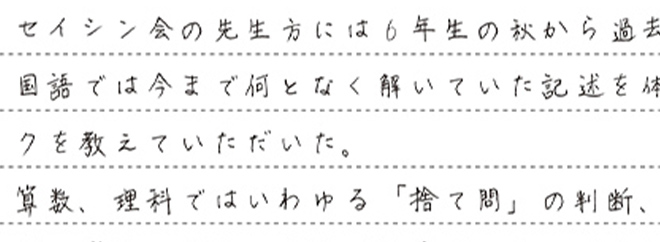 セイシン会の先生方には6年生の秋から過去
国語では今まで何となく解いていた記述を体
クを教えていただいた。
算数、理科ではいわゆる「捨て問」の判断、